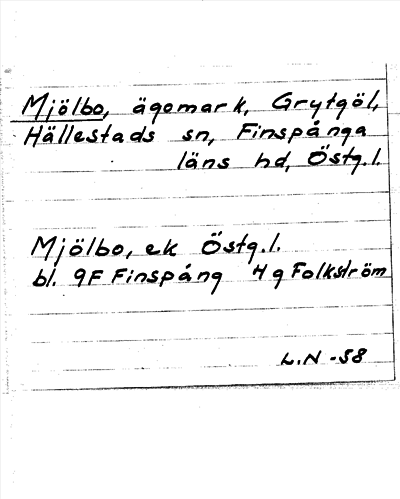 Mjölbo, ägomark, Grytgöl,
Hällestads sn, Finspånga
läns hd, Östg.l.
Mjölbo, ek Östg.l.
bl. 9F Finspång 4g Folkström
L.N -58